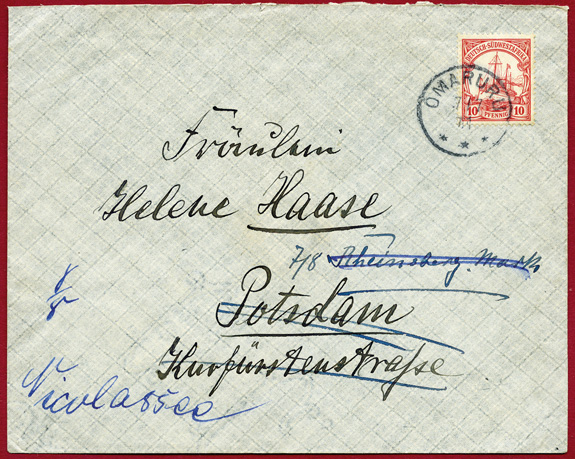 DEUTSCH-SÜDWESTAFRIKA
10 PFENNIG 10
OMARURU
Fräulein
Helene Haase
7/8 Rheinsberg. Mark.
Potsdam
Kurfürstenstraße
Nicolassee